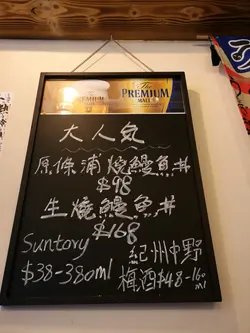 The
PREMIUM
MALT'S
PREMIUM
大人気
原條蒲燒鰻魚丼
$98
生燒鰻魚丼
$168
Suntory
$38-380ml
紀州中野
梅酒$48-160
ml